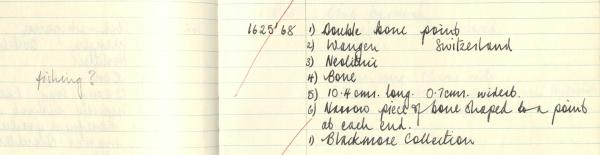 1625'68 1) Double bone point
2) Wangen Switzerland
3) Neolithic
fishing? 4) Bone
5) 10.4 cms. long. 0.7cms. widest.
6) Narrow piece of bone shaped to a point
at each end.
9) Blackmore Collection